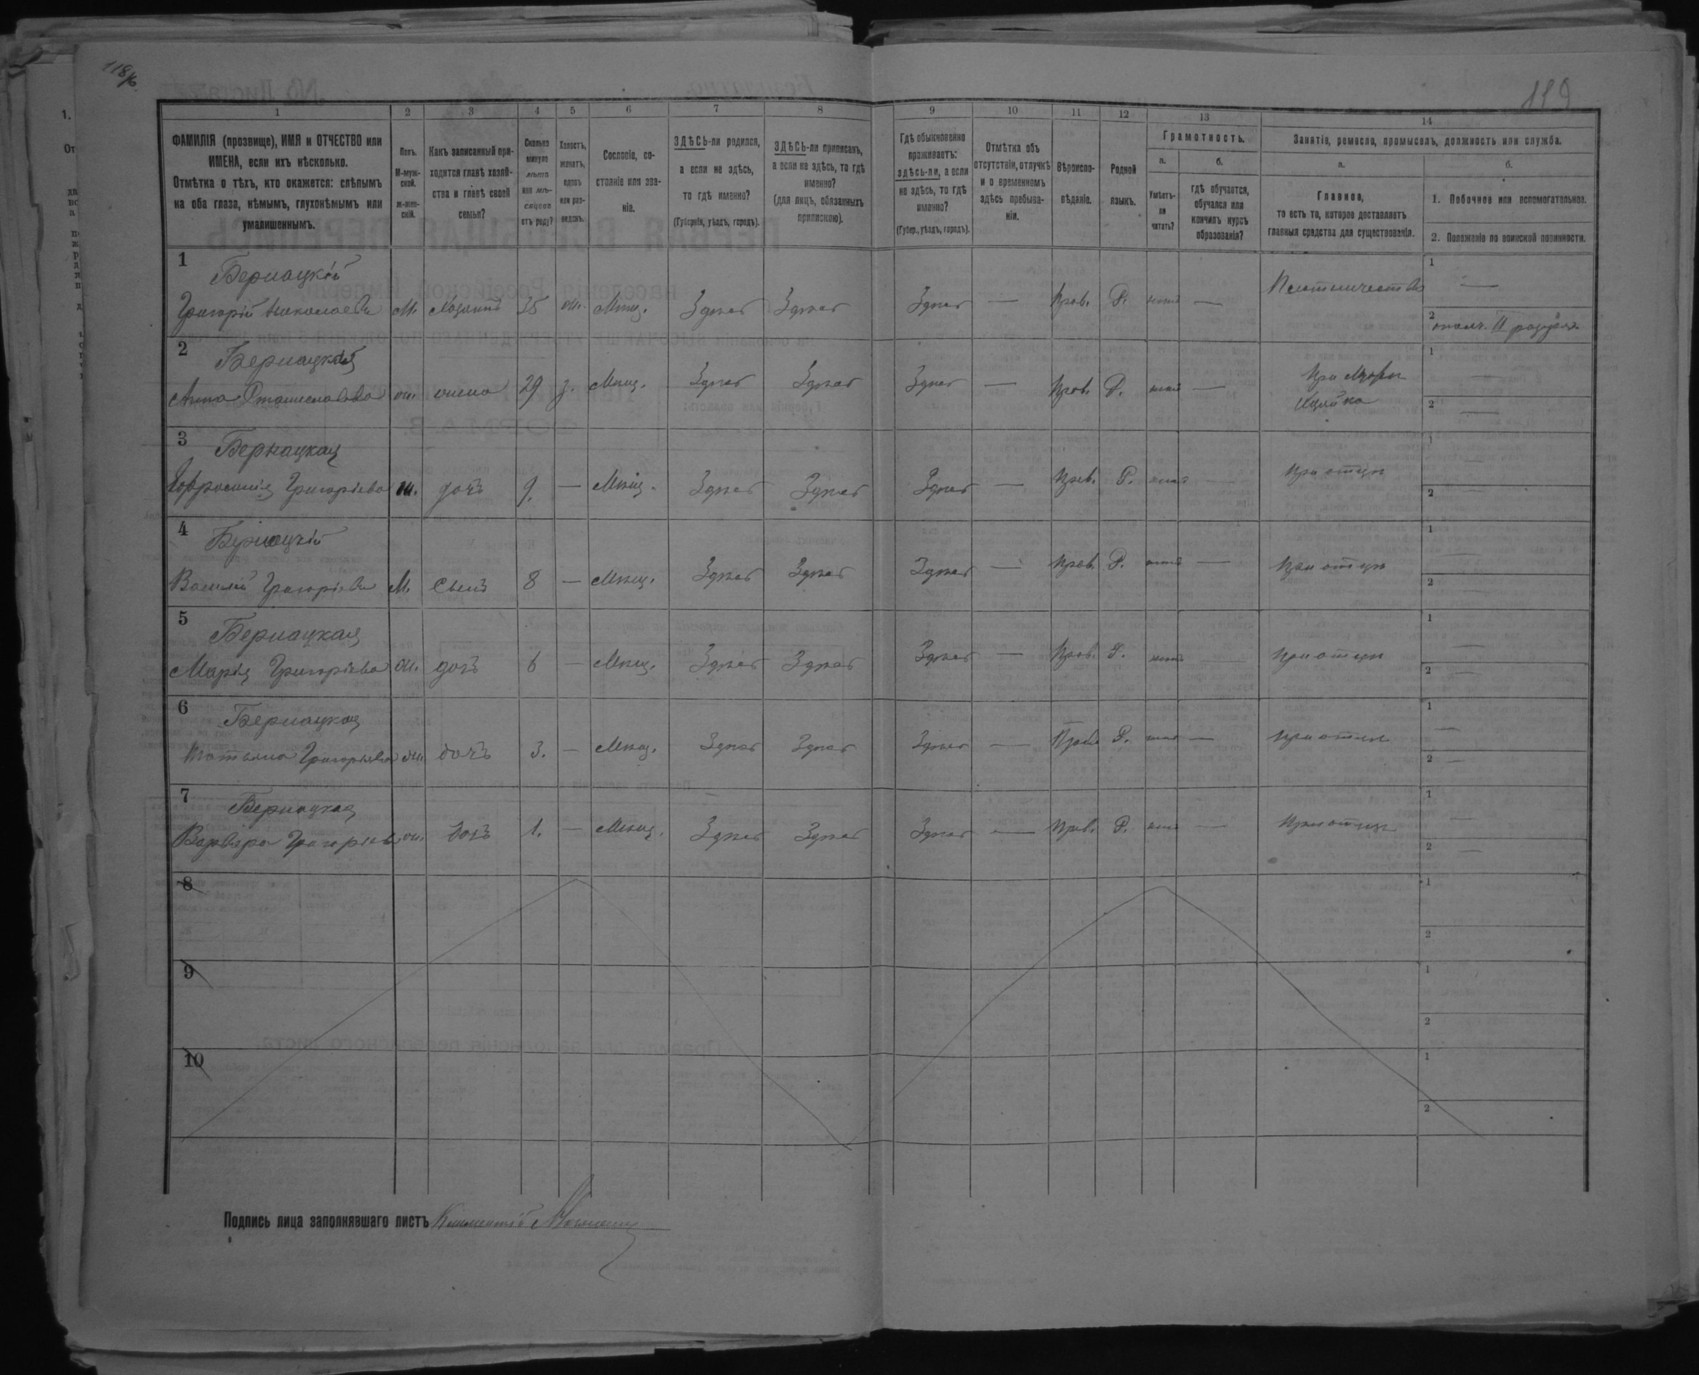 118/б
119
1 2 3 4 5 6 7 8 9 10 11 12 13 14
ФАМИЛІЯ (прозвище), ИМЯ и ОТЧЕСТВО или
ИМЕНА, если ихъ нѣсколько.
Отмѣтка о тѣхъ, кто окажется: слѣпымъ
на оба глаза, нѣмымъ, глухонѣмымъ или
умалишеннымъ.
Полъ.
М-муж-
ской.
ж-жен-
скій.
Какъ записанный при-
ходится главѣ хозяй-
ства и главѣ своей
семьи?
Сколько
минуло
лѣтъ
или мѣ-
сяцевъ
отъ роду?
Холостъ,
женатъ,
вдовъ
или раз-
веденъ.
Сословіе, со-
стояніе или зва-
ніе.
ЗДѢСЬ-ли родился,
а если не здѣсь,
то гдѣ именно?
(Губернія, уѣздъ, городъ).
ЗДѢСЬ-ли приписанъ,
а если не здѣсь, то гдѣ
именно?
(для лицъ, обязанныхъ
припискою).
Гдѣ обыкновенно
проживаетъ:
здѣсь-ли, а если
не здѣсь, то гдѣ
именно?
(Губер., уѣздъ, городъ).
Отмѣтка объ
отсутствіи, отлучкѣ
и о временномъ
здѣсь пребыва-
ніи.
Вѣроиспо-
вѣданіе.
Родной
языкъ.
Грамотность.
а.
Умѣетъ-
ли
читать?
б.
гдѣ обучается,
обучался или
кончилъ курсъ
образованія?
Занятія, ремесло, промыселъ, должность или служба.
а.
Главное,
то есть то, которое доставляетъ
главныя средства для существованія.
б.
1. Побочное или вспомогательное.
2. Положеніе по воинской повинности.
1 Бернацкій
Григорій Николаевъ М. хозяинъ 35 ж. Мѣщ. Здѣсь Здѣсь Здѣсь — Прав. Р. нѣтъ — Плотничество
1 —
2 ополч. II разряда
2 Бернацкая
Анна Станиславова ж. жена 29 з. Мѣщ. Здѣсь Здѣсь Здѣсь — Прав. Р. нѣтъ — При мужѣ
1 —
2 —
3 Бернацкая
Григорьева ж. дочь 9. — Мѣщ. Здѣсь Здѣсь Здѣсь — Прав. Р. нѣтъ — При отцѣ
1 —
2 —
4 Бернацкій
Василій Григорьевъ М. сынъ 8 — Мѣщ. Здѣсь Здѣсь Здѣсь — Прав. Р. нѣтъ — При отцѣ
1 —
2 —
5 Бернацкая
Марія Григорьева ж. дочь 6 — Мѣщ. Здѣсь Здѣсь Здѣсь — Прав. Р. нѣтъ — При отцѣ
1 —
2 —
6 Бернацкая
Татьяна Григорьева ж. дочь 3. — Мѣщ. Здѣсь Здѣсь Здѣсь — Прав. Р. нѣтъ — При отцѣ
1 —
2 —
7 Бернацкая
Варвара Григорьев. ж. дочь 1. — Мѣщ. Здѣсь Здѣсь Здѣсь — Прав. Р. нѣтъ — При отцѣ
1 —
2 —
8
1
2
9
1
2
10
1
2
Подпись лица заполнявшаго листъ